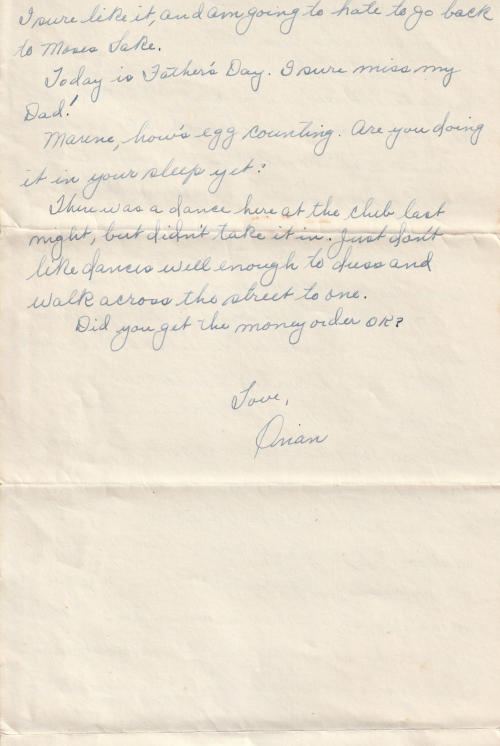 I sure like it, and am going to hate to go back
to Moses Lake.
Today is Father's Day. I sure miss my
Dad!
Marene, how's egg counting. Are you doing
it in your sleep yet?
There was a dance here at the club last
night, but didn't take it in. Just don't
like dances well enough to dress and
walk across the street to one.
Did you get the money order OK?
Love,